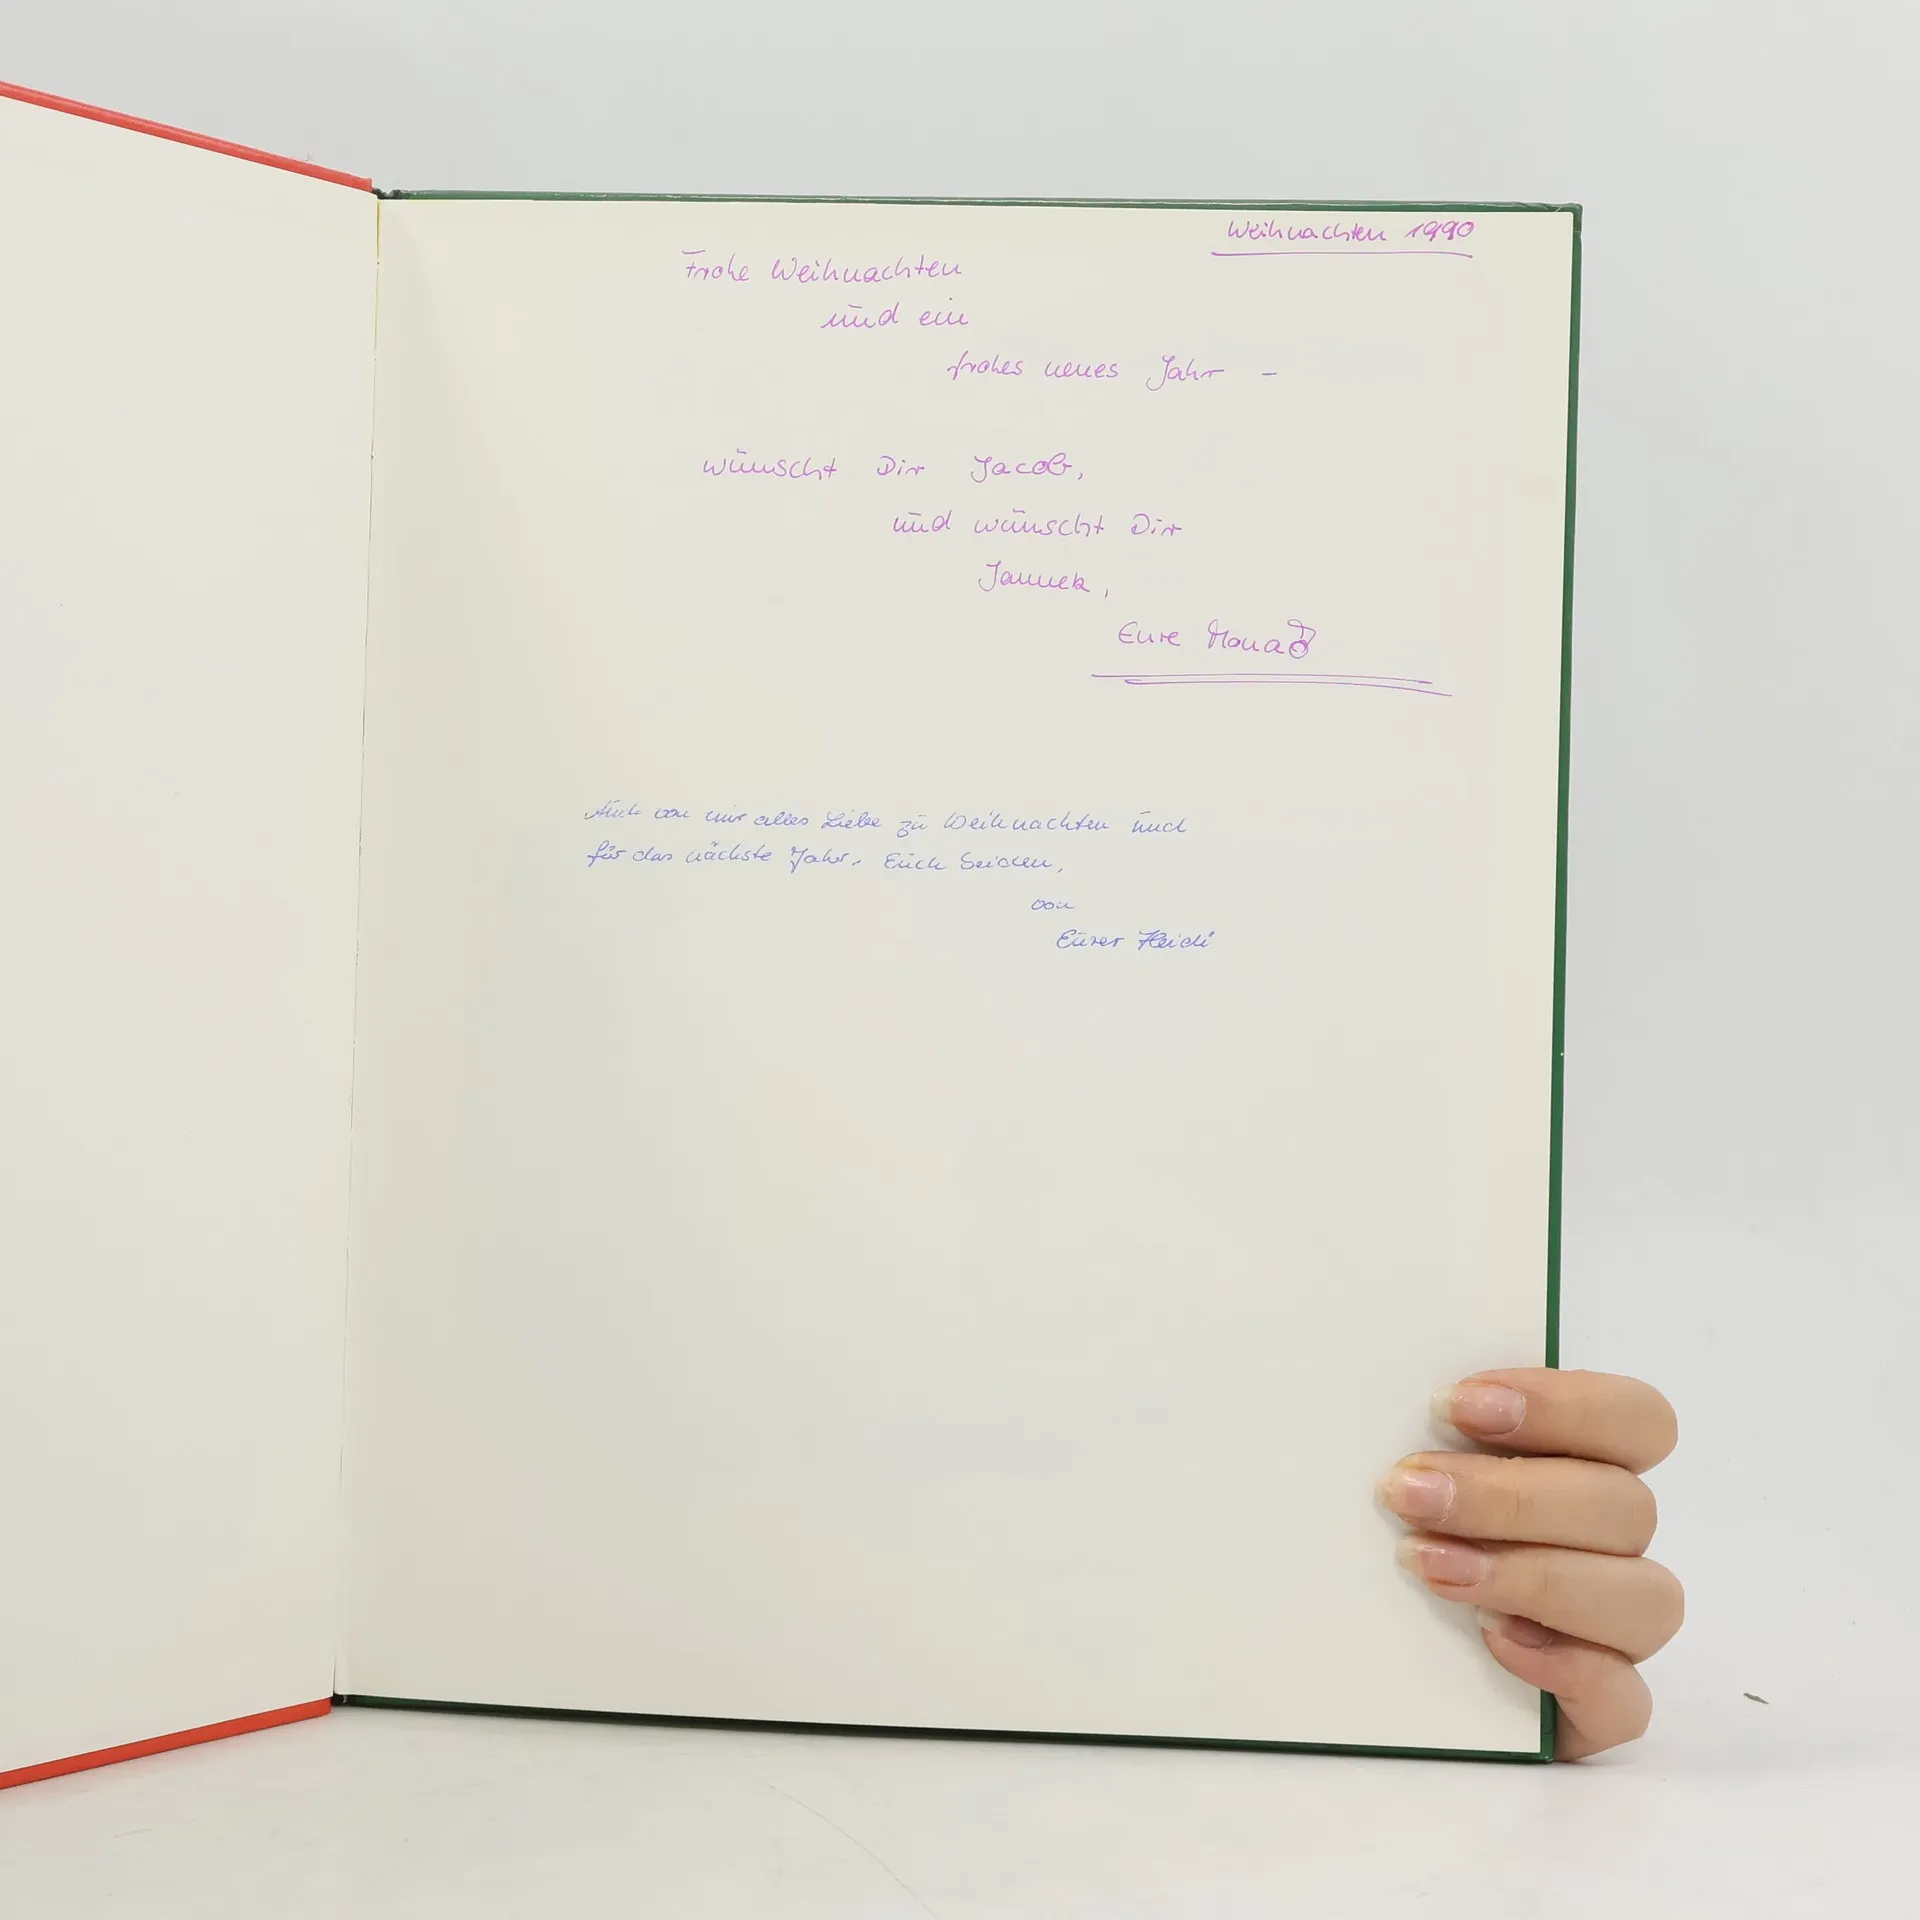 Weihnachten 1990
Frohe Weihnachten
und ein
frohes neues Jahr -
wünscht Dir Jacob,
und wünscht Dir
Jannek,
Eure Mona
Auch von mir alles Liebe zu Weihnachten und
für das nächste Jahr. Euch beiden,
von
Eurer Heidi